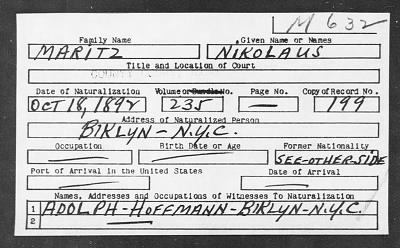 M 632
Family Name Given Name or Names
MARITZ NIKOLAUS
Title and Location of Court
Date of Naturalization Volume or Bundle No. Page No. Copy of Record No.
OCT 18, 1892 235 — 199
Address of Naturalized Person
BIKLYN - N.Y.C.
Occupation Birth Date or Age Former Nationality
SEE-OTHER-SIDE
Port of Arrival in the United States Date of Arrival
Names, Addresses and Occupations of Witnesses To Naturalization
1 ADOLPH-HOFFMANN-BIKLYN-N.Y.C.
2